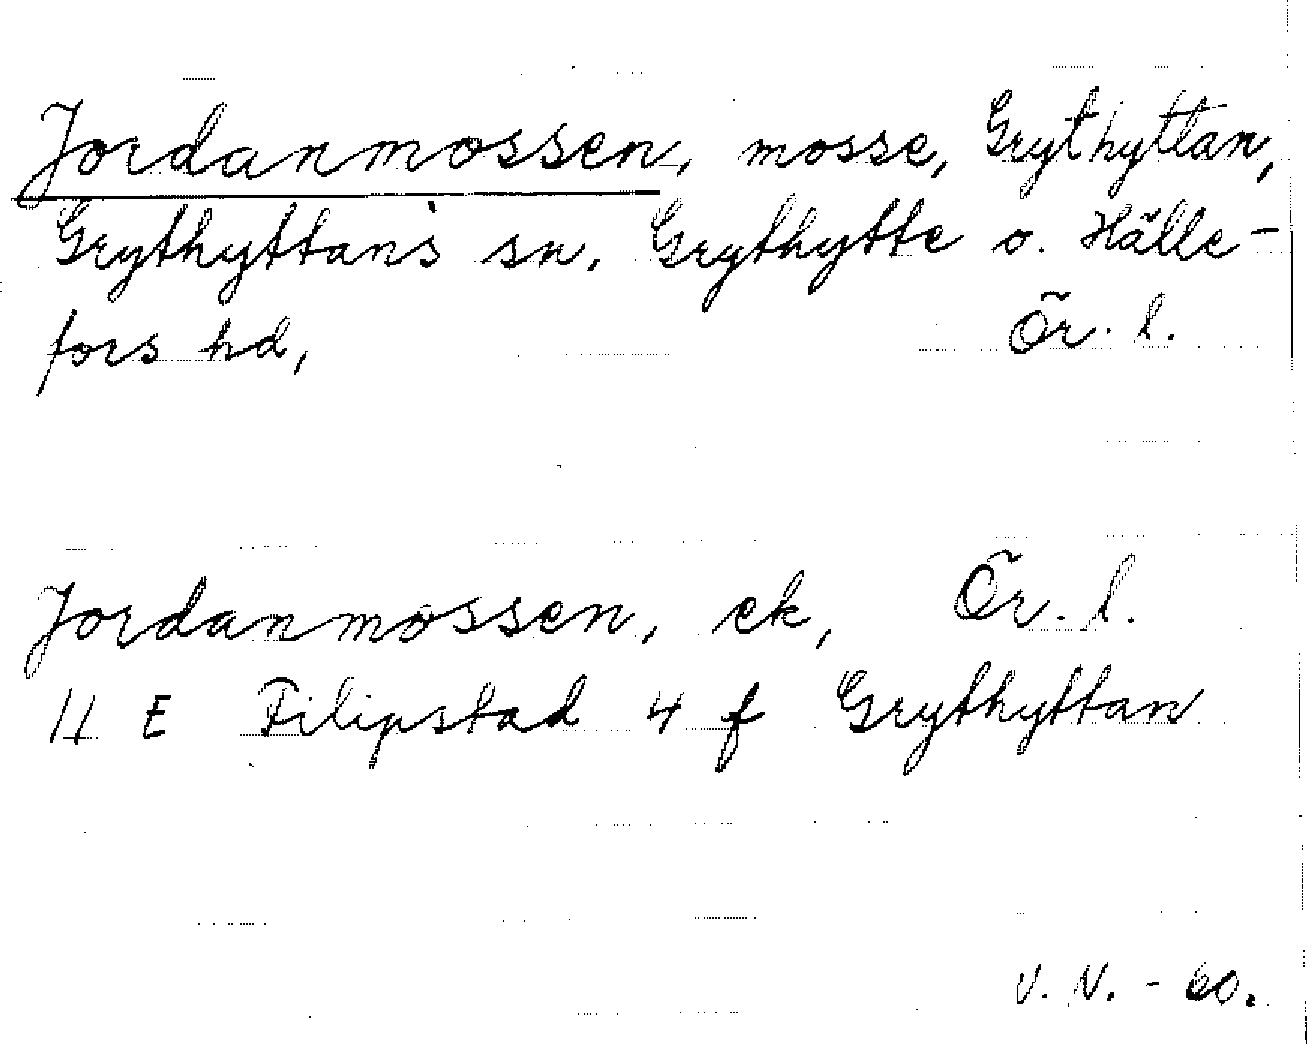 Jordanmossen, mosse, Grythyttan,
Grythyttans sn. Grythytte o. Hälle-
fors hd, Ör. l.
Jordanmossen, ek, Ör. l.
11 E Filipstad 4 f Grythyttan
V. N. - 60.